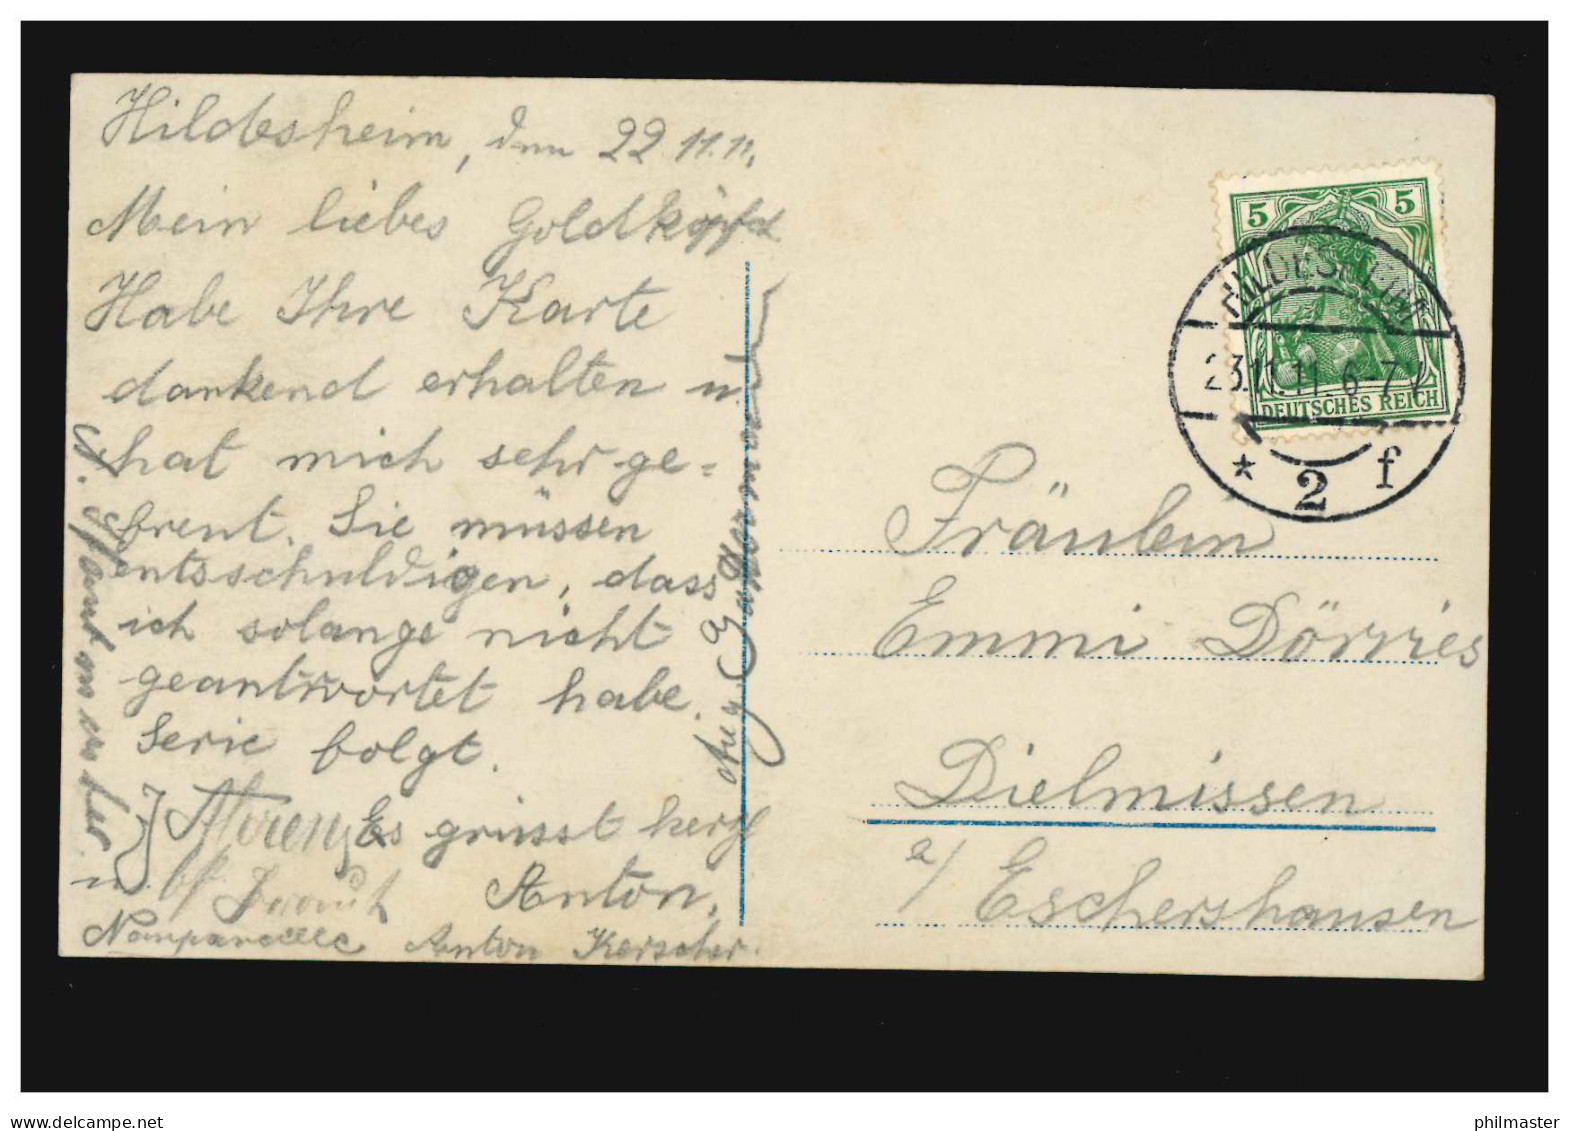 Hildesheim, den 22 11.11.
Mein liebes Goldköpfch
Habe Ihre Karte
dankend erhalten u.
hat mich sehr ge=
freut. Sie müssen
entsschuldigen, dass
ich solange nicht
geantwortet habe.
Serie folgt.
Es grüsst herzl
Anton.
Anton Kerscher.
5 5
DEUTSCHES REICH
HILDESHEIM
23.11.11. 6-7
* 2 f
Fräulein
Emmi Dörries
Dielmissen
a/ Eschershausen
delcampe.net
philmaster